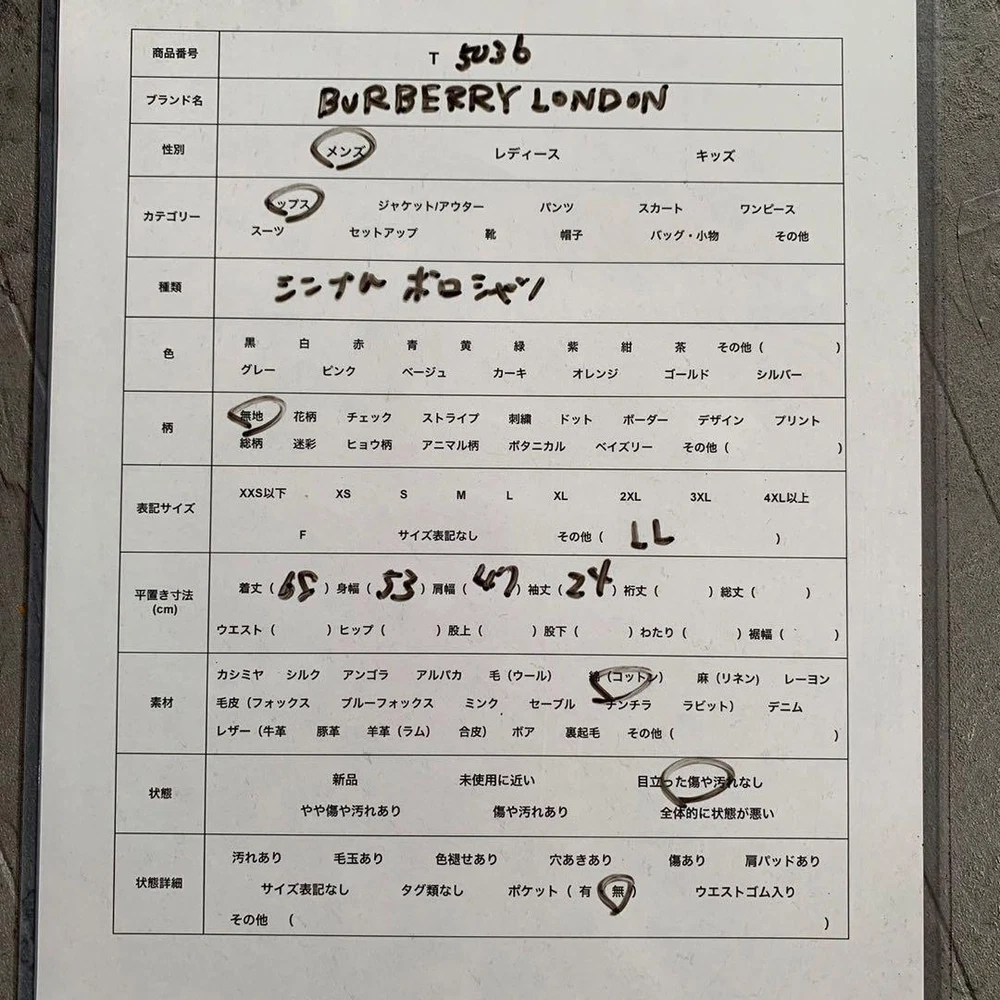 商品番号 T 5036
ブランド名 BURBERRY LONDON
性別 メンズ レディース キッズ
カテゴリー トップス ジャケット/アウター パンツ スカート ワンピース
スーツ セットアップ 靴 帽子 バッグ・小物 その他
種類 シンプル ポロシャツ
色 黒 白 赤 青 黄 緑 紫 紺 茶 その他（ ）
グレー ピンク ベージュ カーキ オレンジ ゴールド シルバー
柄 無地 花柄 チェック ストライプ 刺繍 ドット ボーダー デザイン プリント
総柄 迷彩 ヒョウ柄 アニマル柄 ボタニカル ペイズリー その他（ ）
表記サイズ XXS以下 XS S M L XL 2XL 3XL 4XL以上
F サイズ表記なし その他（ LL ）
平置き寸法 (cm) 着丈（65）身幅（53）肩幅（47）袖丈（24）裄丈（ ）総丈（ ）
ウエスト（ ）ヒップ（ ）股上（ ）股下（ ）わたり（ ）裾幅（ ）
素材 カシミヤ シルク アンゴラ アルパカ 毛（ウール） 綿（コットン） 麻（リネン） レーヨン
毛皮（フォックス ブルーフォックス ミンク セーブル チンチラ ラビット） デニム
レザー（牛革 豚革 羊革（ラム） 合皮） ボア 裏起毛 その他（ ）
状態 新品 未使用に近い 目立った傷や汚れなし
やや傷や汚れあり 傷や汚れあり 全体的に状態が悪い
状態詳細 汚れあり 毛玉あり 色褪せあり 穴あきあり 傷あり 肩パッドあり
サイズ表記なし タグ類なし ポケット（ 有 無 ） ウエストゴム入り
その他 （ ）